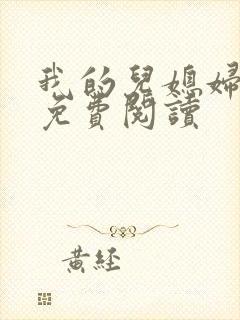 我的兒媳婦
免費閱讀
黃経